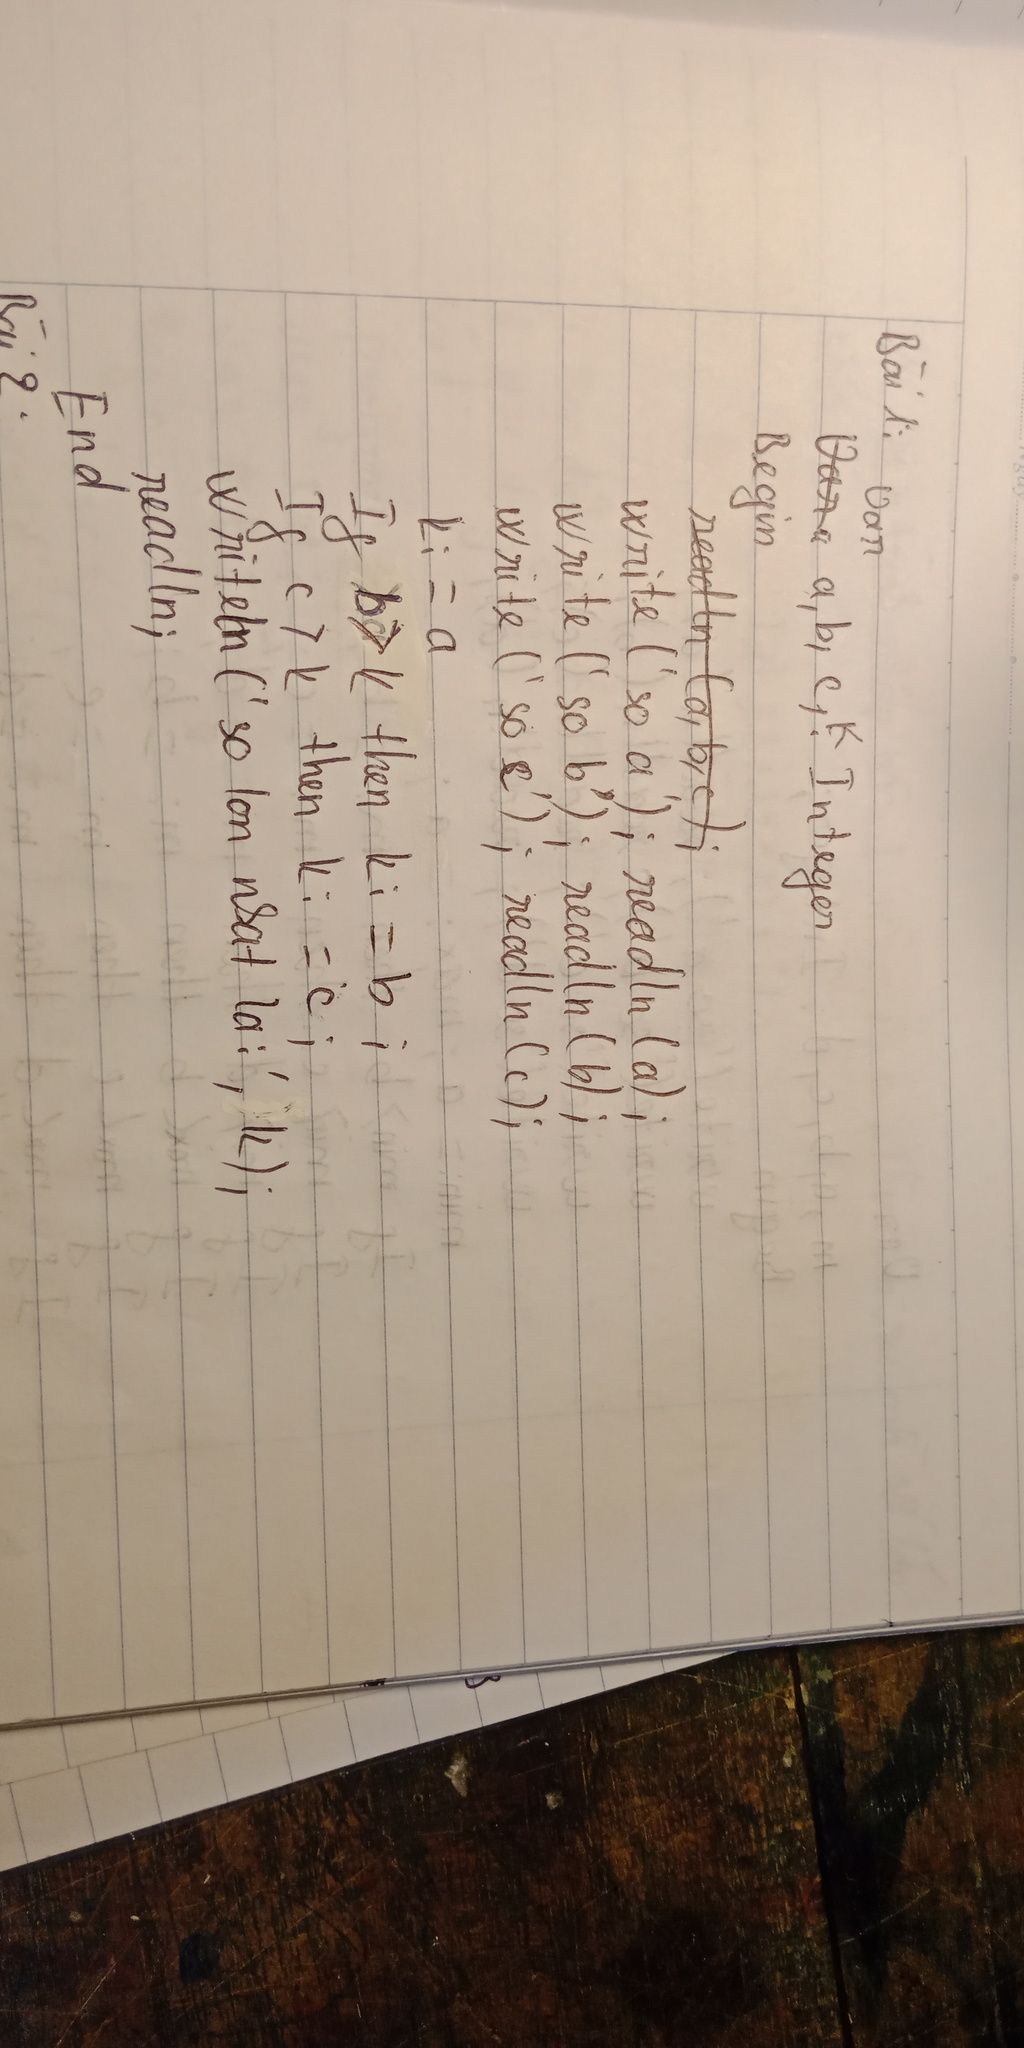 Bài 1: Var
a, b, c, K: Integer
Begin
readln (a, b, c);
write ('so a'); readln (a);
write ('so b'); readln (b);
write ('so c'); readln (c);
k: = a
If b > k then k: = b;
If c > k then k: = c;
writeln ('so lon nhat la:', k);
readln;
End
Bài 2: